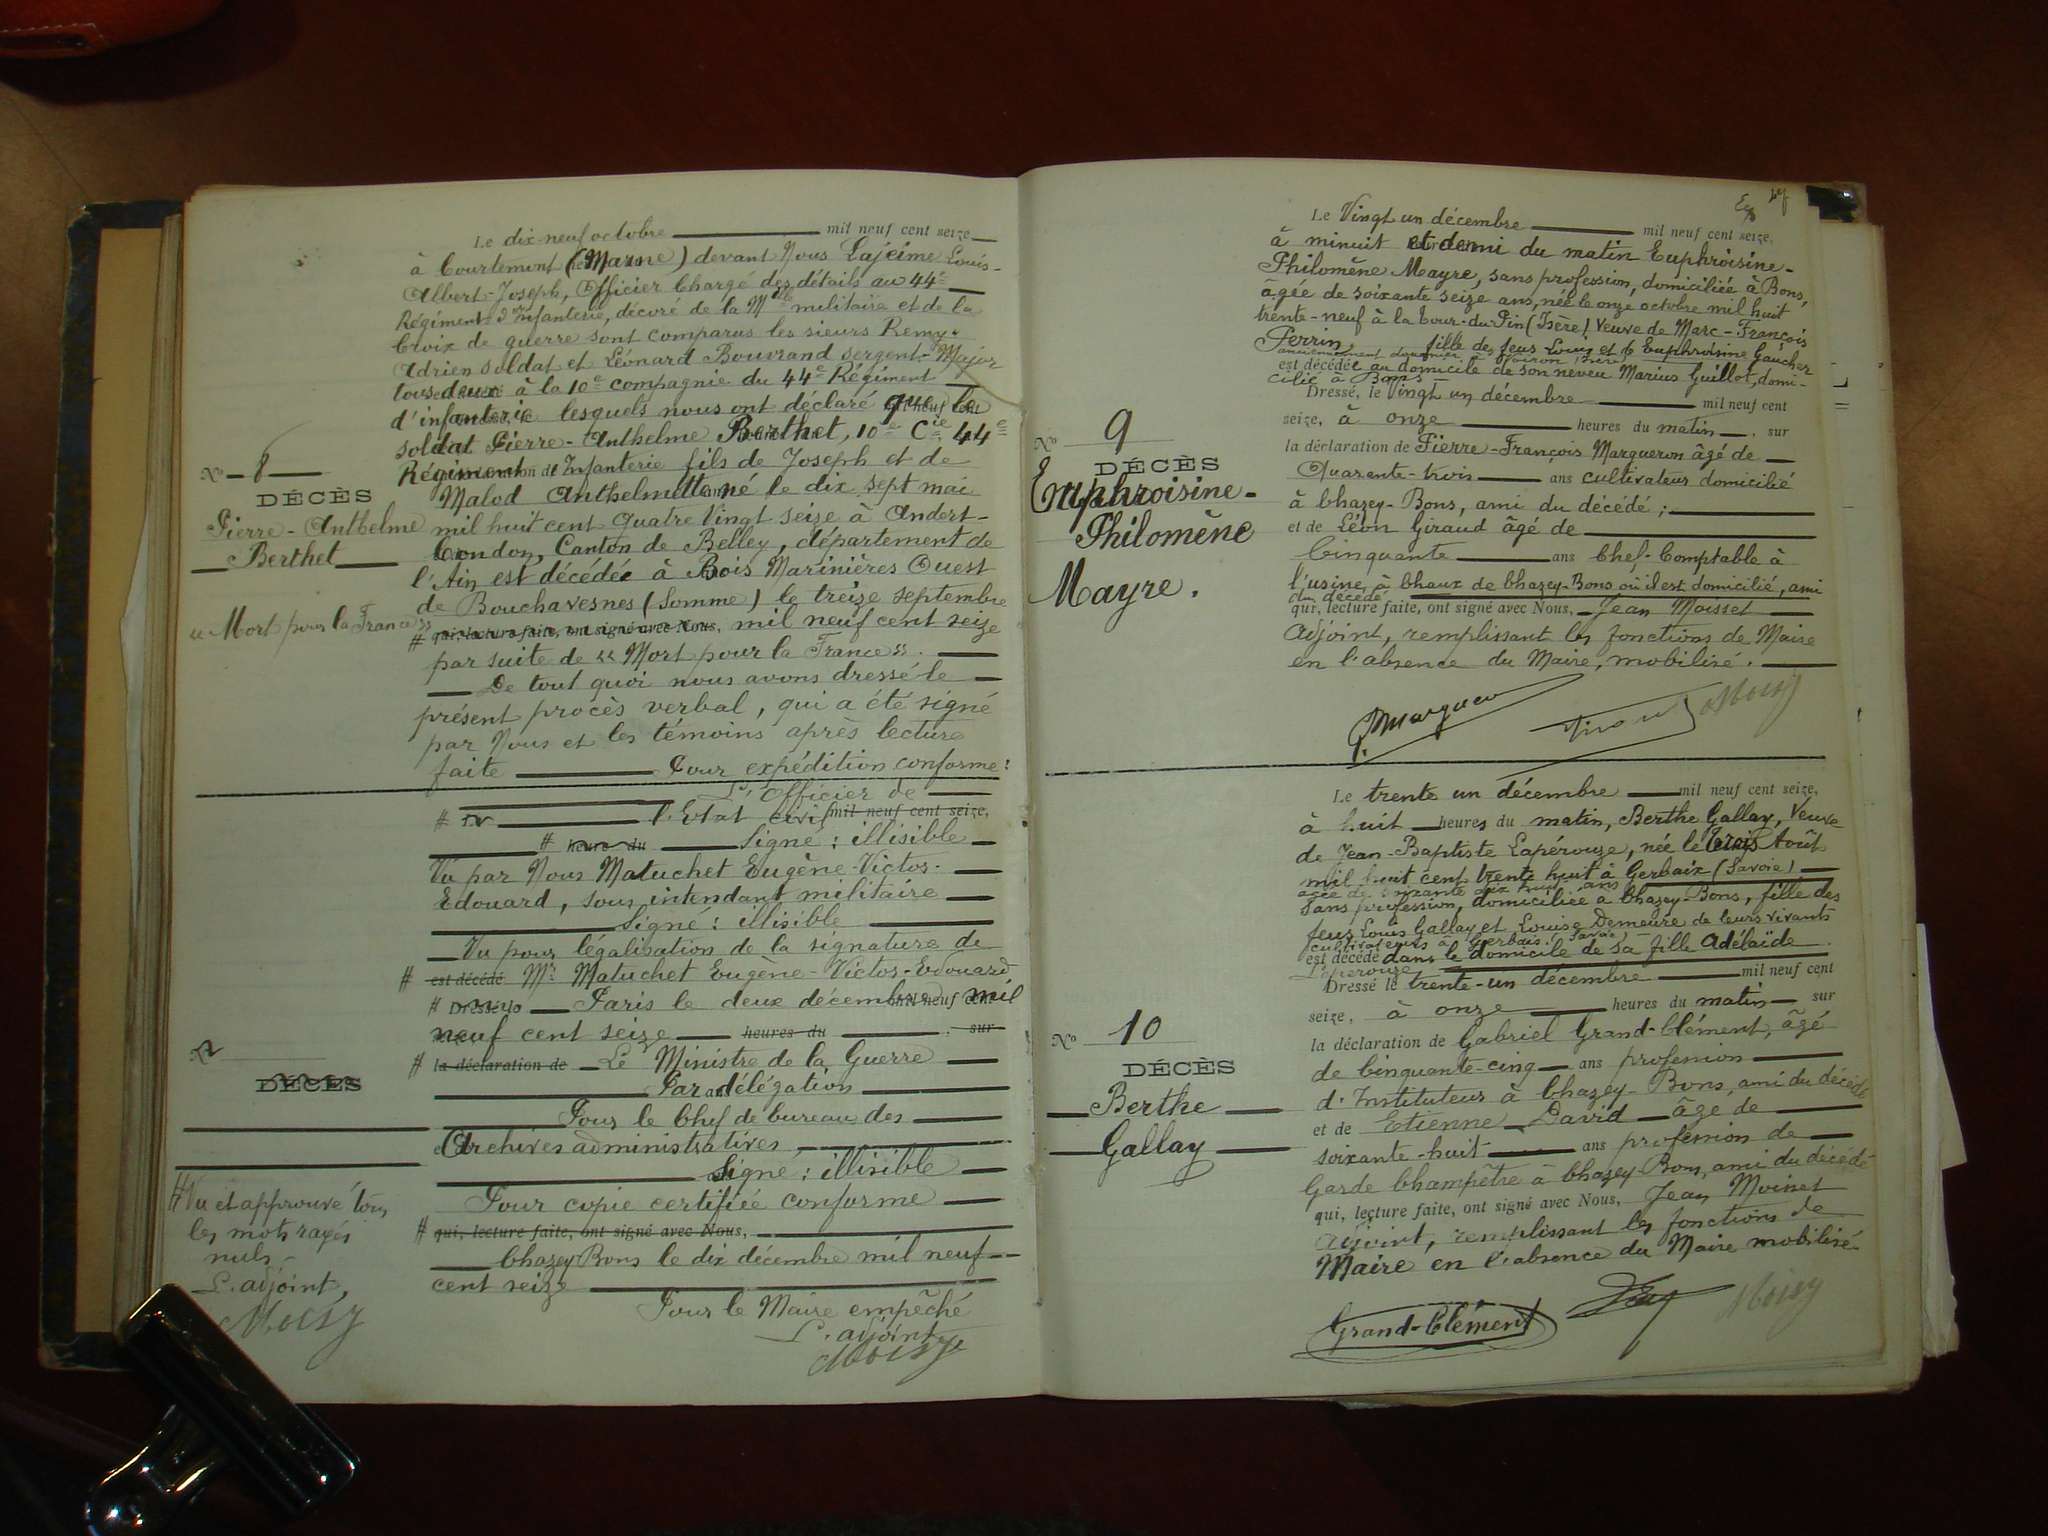 Le dix-neuf octobre mil neuf cent seize
à Courtemont (Marne) devant Nous Lajeime Louis-
Albert-Joseph, Officier Chargé des détails au 44e
Régiment d'Infanterie, décoré de la Mlle militaire et de la
Croix de guerre sont comparus les sieurs Remy
Adrien soldat et Léonard Bouvrand sergent-Major
tous deux à la 10e compagnie du 44e Régiment
d'infanterie lesquels nous ont déclaré que le
soldat Pierre-Anthelme Berthet, 10e Cie 44e
Régiment d'Infanterie fils de Joseph et de
Malod Anthelmette né le dix sept mai
mil huit cent quatre vingt seize à Andert-
Condon, Canton de Belley, département de
l'Ain est décédée à Bois Marinières Ouest
de Bouchavesnes (Somme) le treize septembre
# qui, lecture faite, ont signé avec Nous, mil neuf cent seize
par suite de « Mort pour la France ».
De tout quoi nous avons dressé le
présent procès verbal, qui a été signé
par Nous et les témoins après lecture
faite Pour expédition conforme:
No 8
DÉCÈS
Pierre-Anthelme
Berthet
« Mort pour la France »
L'Officier de
# l'Etat civil mil neuf cent seize,
# heure du Signé : illisible
Vu par Nous Matuchet Eugène-Victor-
Edouard, sous intendant militaire
Signé : illisible
Vu pour légalisation de la signature de
# est décédé Mr Matuchet Eugène-Victor-Edouard
# Dressé le Paris le deux décembre mil
neuf cent seize heures du sur
# la déclaration de Le Ministre de la Guerre
Par délégation
Pour le Chef de bureau des
Archives administratives,
Signé : illisible
Pour copie certifiée conforme
# qui, lecture faite, ont signé avec Nous,
Chazey Bons le dix décembre mil neuf
cent seize
Pour le Maire empêché
L'adjoint
Moisy
No
DÉCÈS
# Vu et approuvé tous
les mots rayés
nuls -
L'adjoint,
Moisy
Le Vingt un décembre mil neuf cent seize,
à minuit et demi du matin Euphroisine-
Philomène Mayre, sans profession, domiciliée à Bons,
âgée de soixante seize ans, née le onze octobre mil huit
trente-neuf à la Tour-du-Pin (Isère) Veuve de Marc-François
Perrin, fille des feus Louis et Euphroisine Gaucher
est décédée au domicile de son neveu Marius Guillot, domi-
cilié à Bons
Dressé, le Vingt un décembre mil neuf cent
seize, à onze heures du matin, sur
la déclaration de Pierre-François Margueron âgé de
Quarente-trois ans cultivateur domicilié
à Chazey-Bons, ami du décédé ;
et de Léon Giraud âgé de
Cinquante ans Chef-Comptable à
l'usine à Chaux de Chazey-Bons où il est domicilié, ami
du décédé
qui, lecture faite, ont signé avec Nous, Jean Moisset
Adjoint, remplissant les fonctions de Maire
en l'absence du Maire, mobilisé.
No 9
DÉCÈS
Euphroisine-
Philomène
Mayre.
Le trente un décembre mil neuf cent seize,
à huit heures du matin, Berthe Gallay, Veuve
de Jean-Baptiste Lapérouze, née le trois Août
mil huit cent trente huit à Gerbaix (Savoie)
âgée de soixante dix huit ans
sans profession, domiciliée à Chazey-Bons, fille des
feus Louis Gallay et Louise Demeure de leurs vivants
cultivateurs à Gerbaix (Savoie)
est décédé dans le domicile de sa fille Adélaïde
Lapérouze
Dressé le trente-un décembre mil neuf cent
seize, à onze heures du matin sur
la déclaration de Gabriel Grand-Clément, âgé
de Cinquante-cinq ans profession
d'Instituteur à Chazey-Bons, ami du décédé
et de Etienne David âgé de
soixante-huit ans profession de
Garde Champêtre à Chazey-Bons, ami du décédé
qui, lecture faite, ont signé avec Nous, Jean Moisset
adjoint, remplissant les fonctions de
Maire en l'absence du Maire mobilisé
Grand-Clément Moisy
No 10
DÉCÈS
Berthe
Gallay